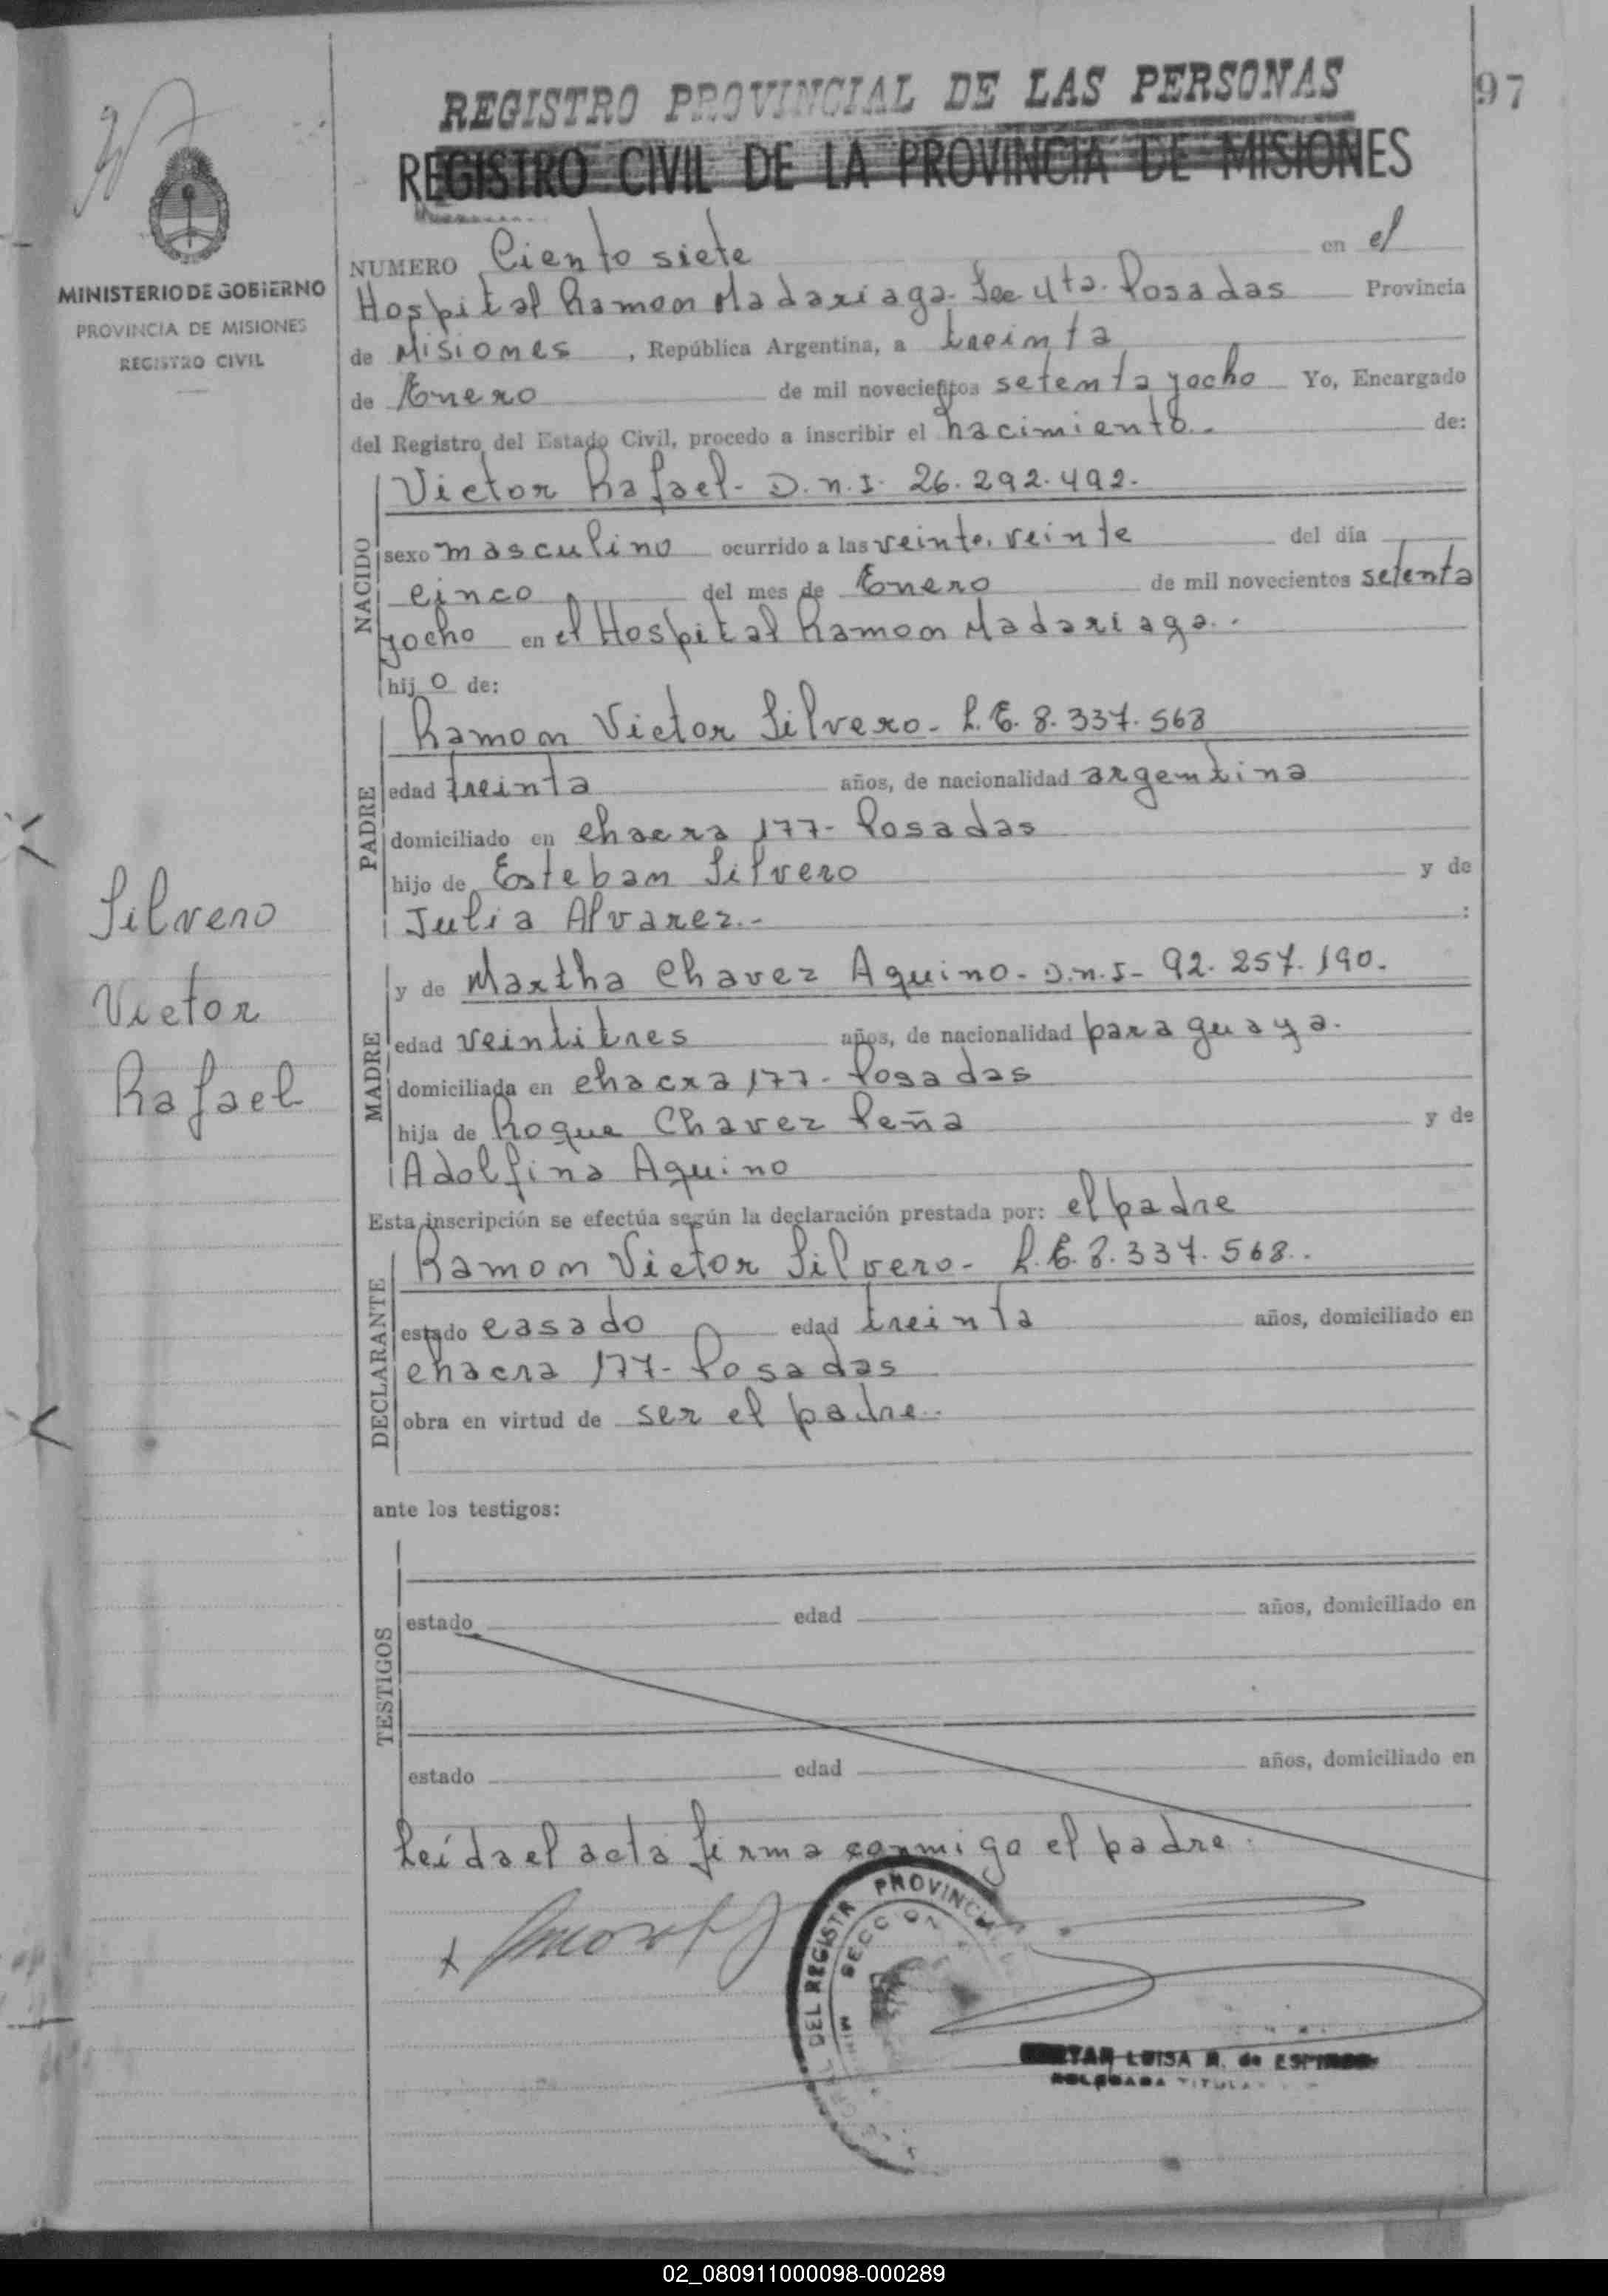 REGISTRO PROVINCIAL DE LAS PERSONAS
97
REGISTRO CIVIL DE LA PROVINCIA DE MISIONES
MINISTERIO DE GOBIERNO
PROVINCIA DE MISIONES
REGISTRO CIVIL
NUMERO Ciento siete en el
Hospital Ramon Madariaga. Sec 4ta. Posadas Provincia
de Misiones, República Argentina, a treinta
de Enero de mil novecientos setenta yocho Yo, Encargado
del Registro del Estado Civil, procedo a inscribir el nacimiento.. de:
NACIDO
Victor Rafael. D.n.I. 26.292.492.
sexo masculino ocurrido a las veinte, veinte del día
cinco del mes de Enero de mil novecientos setenta
yocho en el Hospital Ramon Madariaga..
hijo de:
PADRE
Ramon Victor Silvero. L.E. 8.337.568
edad treinta años, de nacionalidad argentina
domiciliado en chacra 177- Posadas
hijo de Esteban Silvero y de
Julia Alvarez.- :
MADRE
y de Martha Chavez Aquino. D.n.I- 92.257.190.
edad veintitres años, de nacionalidad paraguaya.
domiciliada en chacra 177- Posadas
hija de Roque Chavez Peña y de
Adolfina Aquino
Silvero
Victor
Rafael
Esta inscripción se efectúa según la declaración prestada por: el padre
DECLARANTE
Ramon Victor Silvero- L.E.8.337.568..
estado casado edad treinta años, domiciliado en
chacra 177- Posadas
obra en virtud de ser el padre..
ante los testigos:
TESTIGOS
estado edad años, domiciliado en
estado edad años, domiciliado en
Leída el acta firma conmigo el padre.
DEL REGISTR PROVINCIA
SECCION
LUISA R. de
TITULAR
02_080911000098-000289